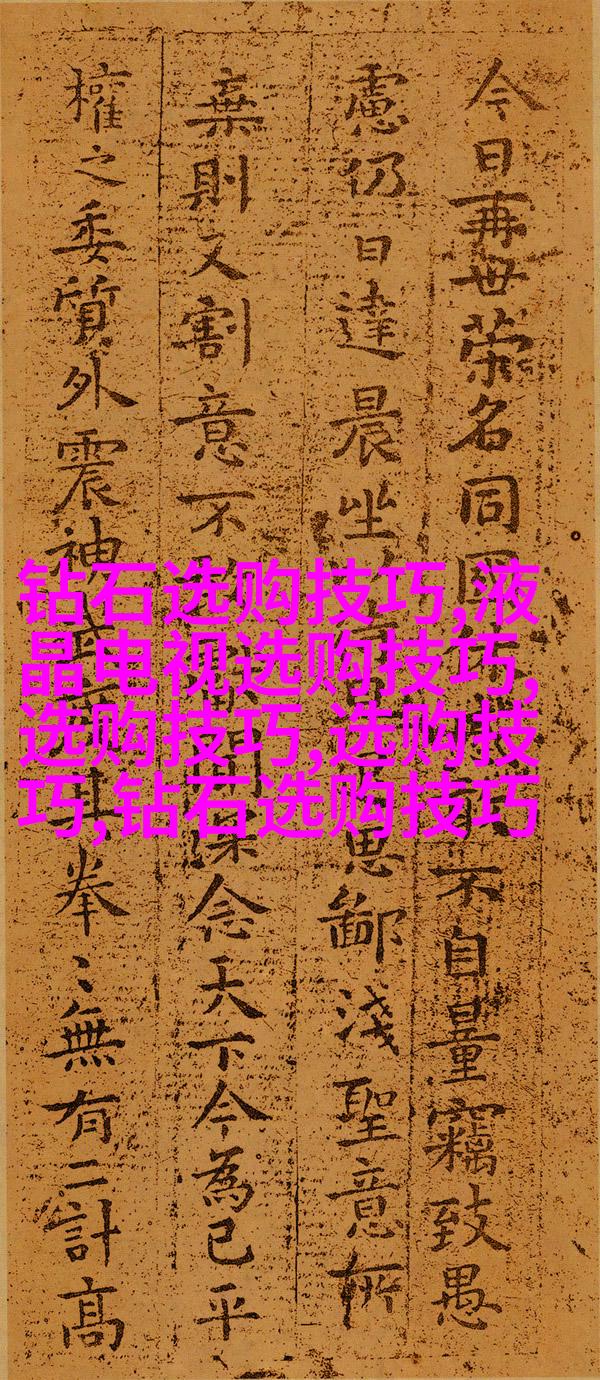 今日再世榮名同國不自量竊致愚
慮仍日達晨坐思鄙淺聖意所
棄則又割意不聞深念天下今為已平
權之委質外震神其拳〻無有二計高
钻石选购技巧,液
晶电视选购技巧,
选购技巧,选购技
巧,钻石选购技巧